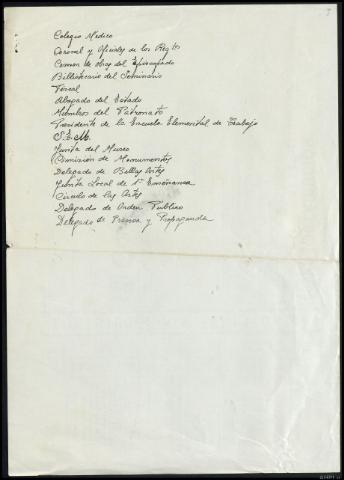 Colegio Médico
Coronel y Oficiales de los Regtos
Censor de obras del Episcopado
Bibliotecario del Seminario
Fiscal
Abogado del Estado
Miembros del Patronato
Presidente de la Escuela Elemental de Trabajo
Junta del Museo
Comisión de Monumentos
Delegado de Bellas Artes
Junta Local de 1ª Enseñanza
Círculo de las Artes
Delegado de Orden Publico
Delegado de Prensa y Propaganda